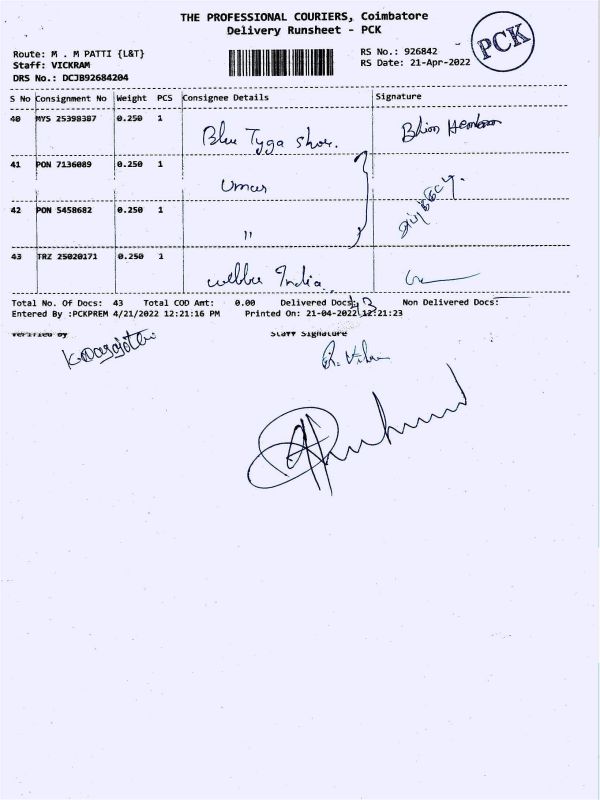 THE PROFESSIONAL COURIERS, Coimbatore
Delivery Runsheet - PCK
PCK
Route: M . M PATTI {L&T}
RS No.: 926842
Staff: VICKRAM
RS Date: 21-Apr-2022
DRS No.: DCJB92684204
S No Consignment No Weight PCS Consignee Details Signature
40 MYS 25398387 0.250 1 Blue Tyga Shoe.
41 PON 7136089 0.250 1 Umar
42 PON 5458682 0.250 1 "
43 TRZ 25020171 0.250 1 India
Total No. Of Docs: 43 Total COD Amt: 0.00 Delivered Docs: 43 Non Delivered Docs:
Entered By :PCKPREM 4/21/2022 12:21:16 PM Printed On: 21-04-2022 12:21:23
Verified By Staff Signature